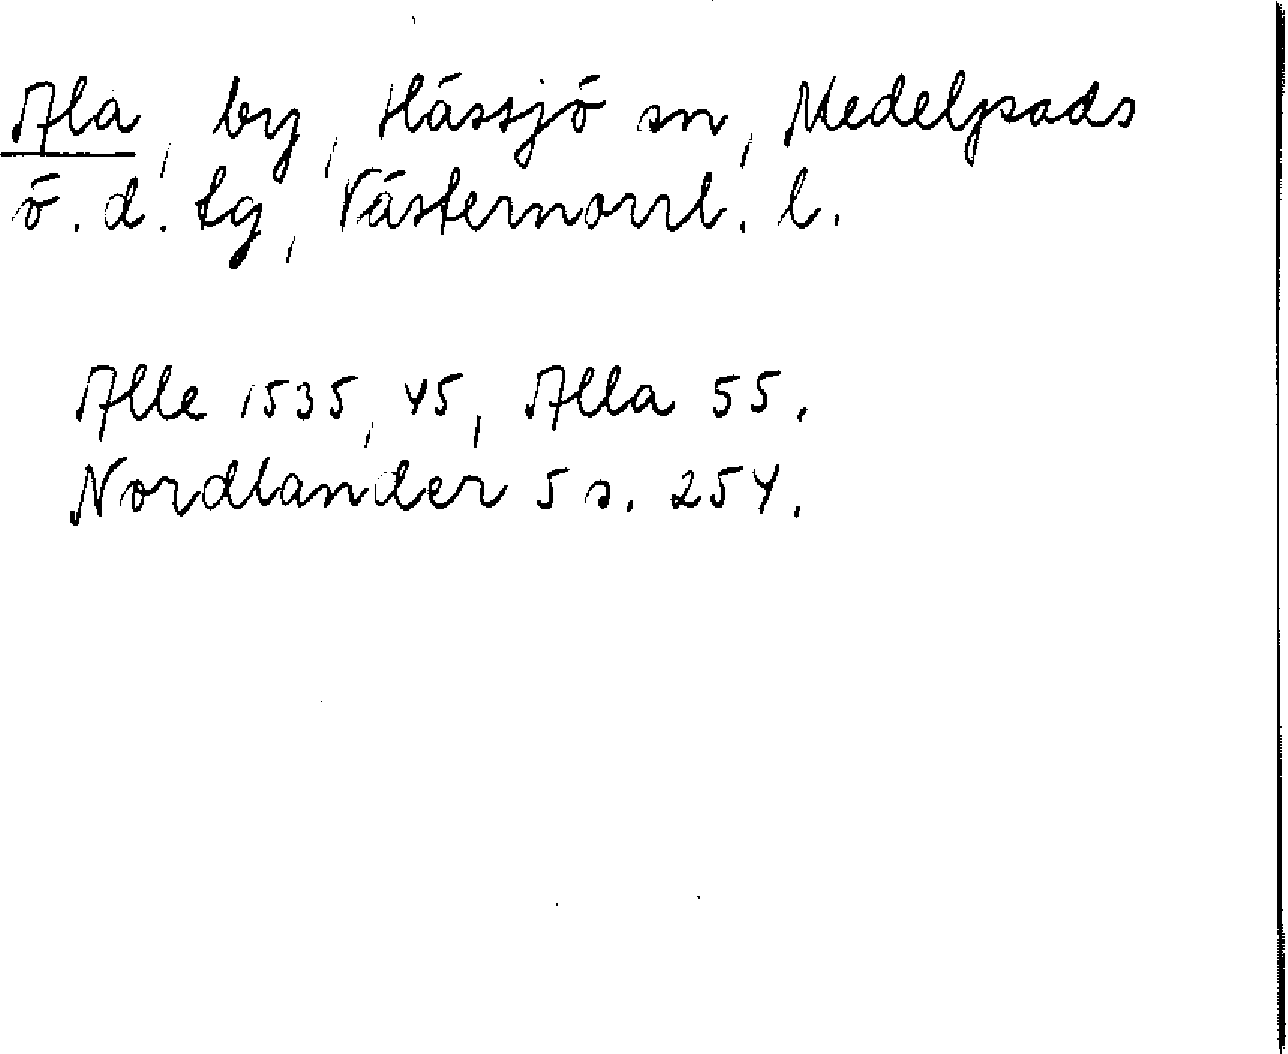 Ala, by, Hässjö sn, Medelpads
ö. d. tg, Västernorrl. l.
Alle 1535, 45, Alla 55.
Nordlander 5 s. 254.